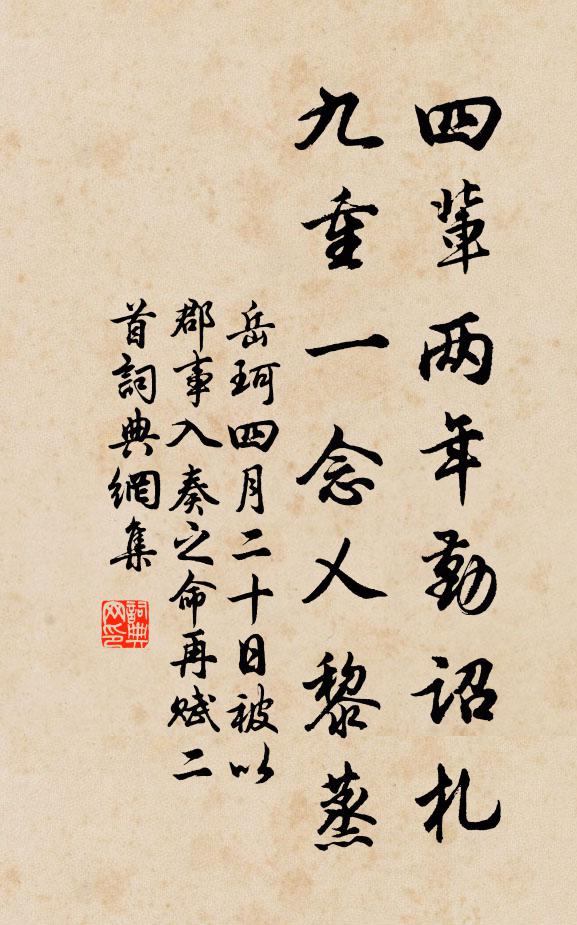 四辈两年勤诏札
九重一念乂黎蒸
岳珂四月二十日被以
郡事入奏之命再赋二
首詞典網集
詞典网印